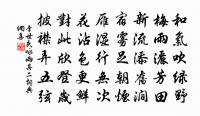 和氣吹綠野
梅雨灑芳田
新流添舊澗
宿霧足朝煙
雁濕行無次
花沾色更鮮
對此欣登歲
披襟弄五弦
李世民詠雨其二詞典
網書